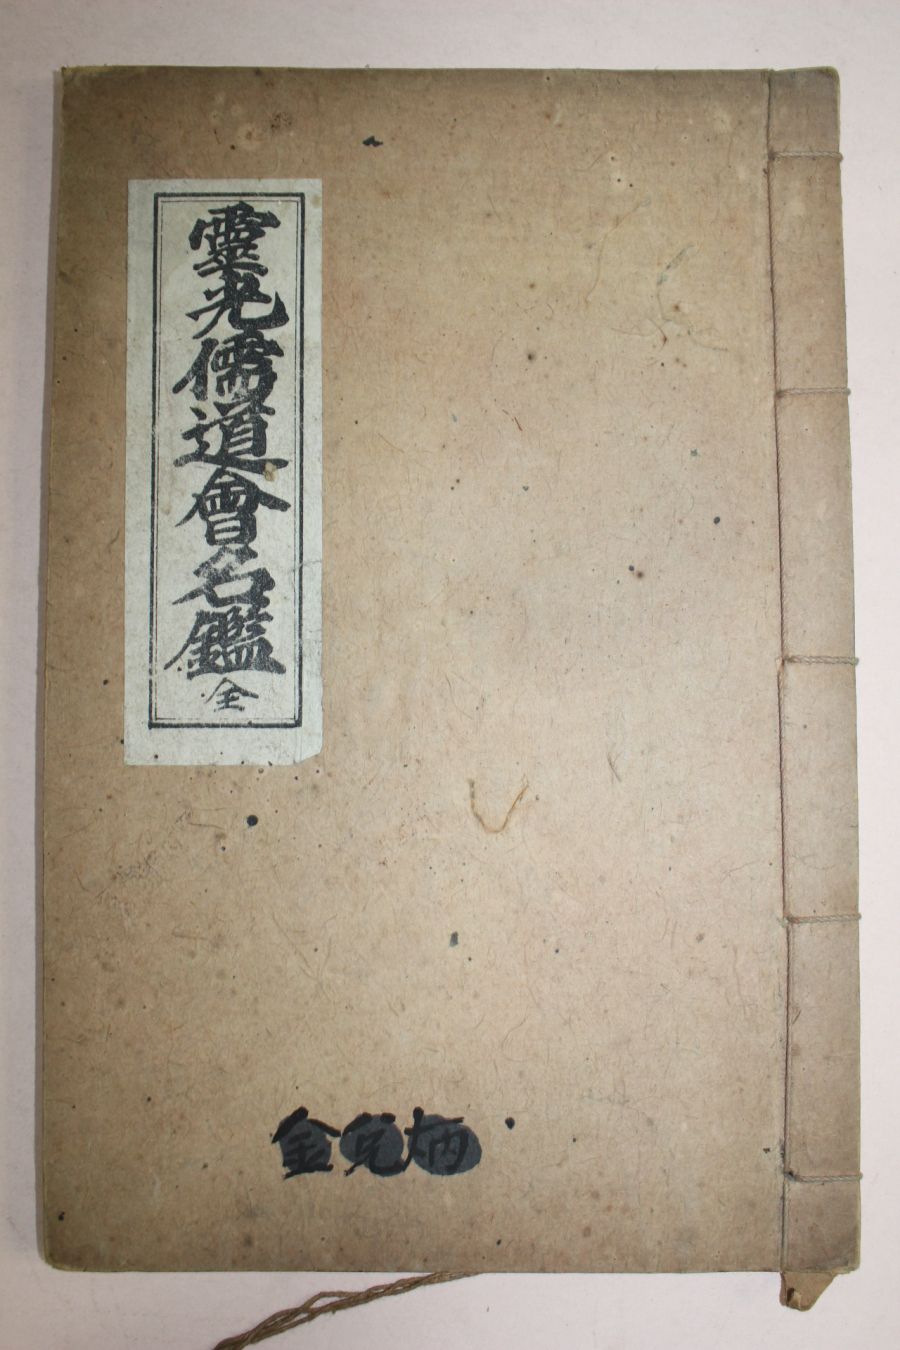 靈光儒道會名鑑 全
金兌炳